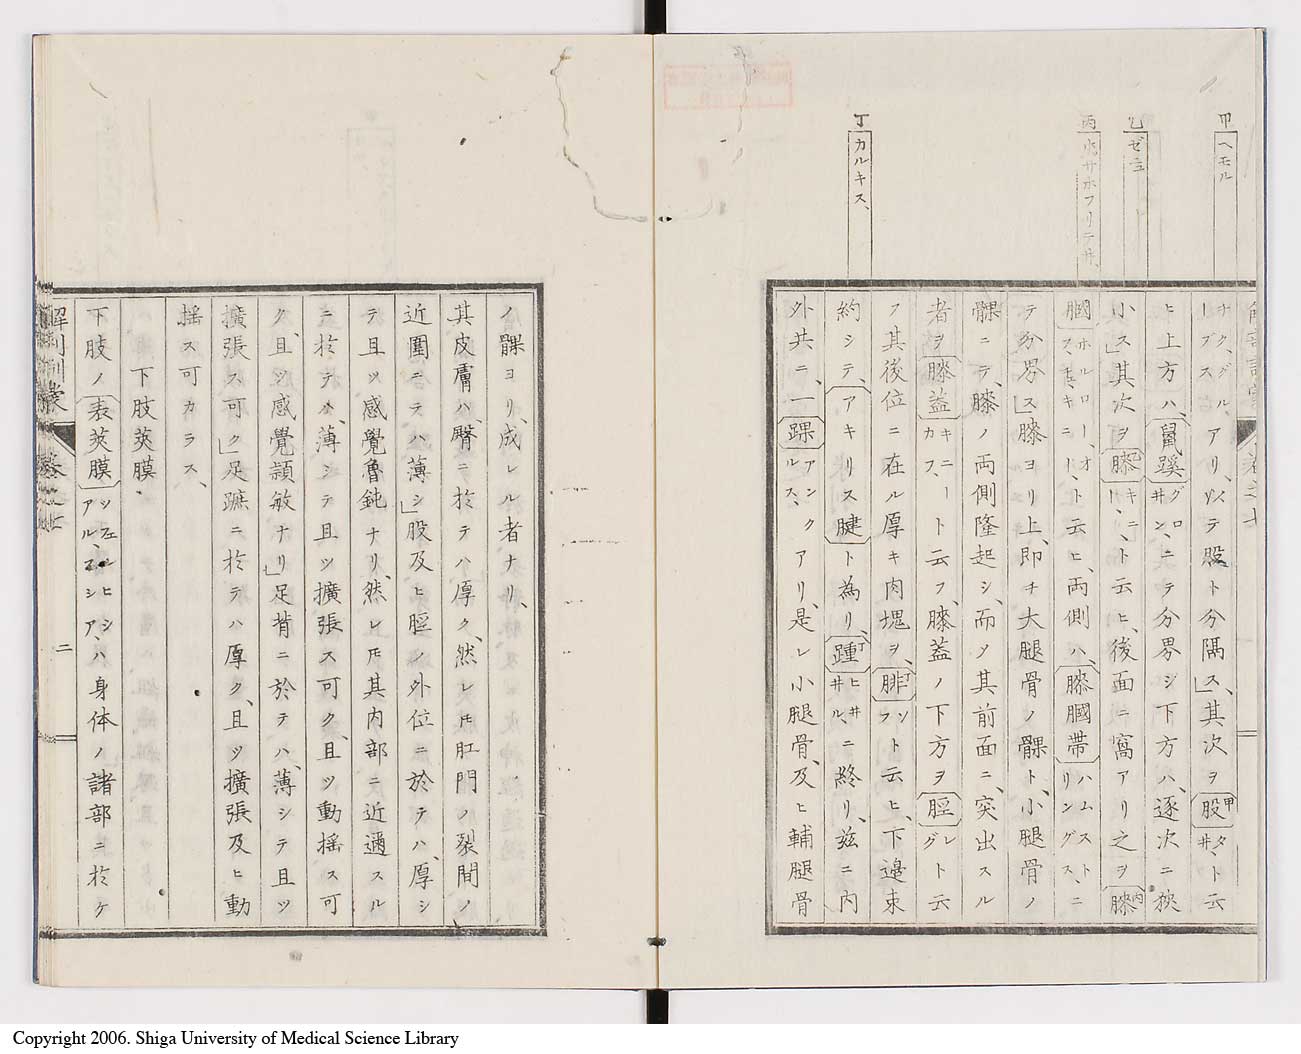 甲 ヘモル
乙 ゼニユ
丁 カルキス、
サク、グル、アリ、以テ股ト分隔ス、」其次ヲ股甲 サタ、ト云
ヒ上方ハ、鼠蹊 グロ井ン、ニテ分界シ下方ハ、逐次ニ狹
小ス」其次ヲ膝乙 キニー、ト云ヒ、後面ニ窩アリ之ヲ膝丙
膕 ホルローオ ト云ヒ、両側ハ、膝膕帶 ハムストリングス、ニ
テ分界ス」膝ヨリ上、即チ大腿骨ノ髁ト、小腿骨ノ
髁ニテ、膝ノ両側隆起シ、而〆其前面ニ、突出スル
者ヲ膝蓋 キニーカフ、ト云フ、膝蓋ノ下方ヲ脛 レグ ト云
フ其後位ニ在ル厚キ肉塊ヲ、腓丁 ト云ヒ、下邉束
約シテ、アキリス腱ト為リ、踵 ヒール、ニ終リ、玆ニ内
外共ニ、一踝 アンクルス、アリ、是レ小腿骨、及ヒ輔腿骨
ノ髁ヨリ、成レル者ナリ、
其皮膚ハ、臀ニ於テハ厚ク、然レ𪜈肛門ノ裂間ノ
近圍ニテハ薄シ」股及ヒ脛ノ外位ニ於テハ、厚シ
テ且ツ感覺魯鈍ナリ、然レ𪜈其内部ニ近邇スル
ニ於テハ、薄シテ且ツ擴張ス可ク、且ツ動搖ス可
ク、且ツ感覺頴敏ナリ」足背ニ於テハ、薄シテ且ツ
擴張ス可ク」足蹠ニ於テハ厚ク、且ツ擴張及ヒ動
搖ス可カラス、
下肢莢膜、
下肢ノ表莢膜 シツフェルヒシアル ハ身体ノ諸部ニ於ケ
二
Copyright 2006. Shiga University of Medical Science Library